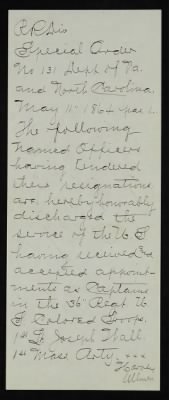 R & P Dis
Special Order
No 131 Dept of Va.
and North Carolina.
May 11" 1864 par 1.
The following
named Officers
having tendered
there resignations
are hereby honorably
discharged the
service of the U S
having received &
accepted appoint-
ments as Captains
in the 36" Regt U.
S Colored Troops.
1st Lt Joseph Hall.
1st Mass Arty.